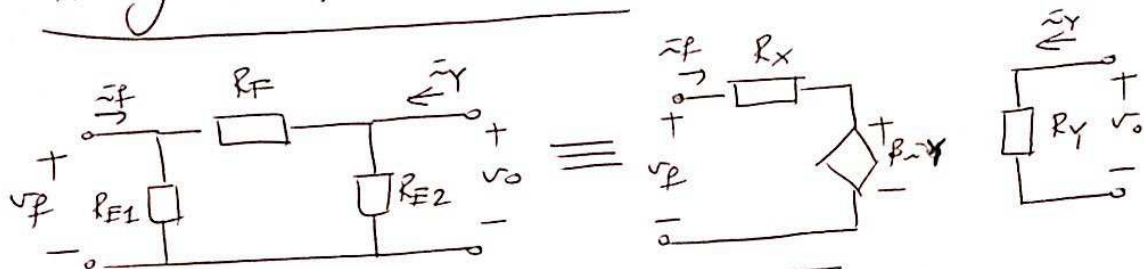 if
RF
iY
+
vf
−
RE1
RE2
+
vo
−
≡
if
RX
+
vf
−
+
βiY
−
iY
RY
+
vo
−